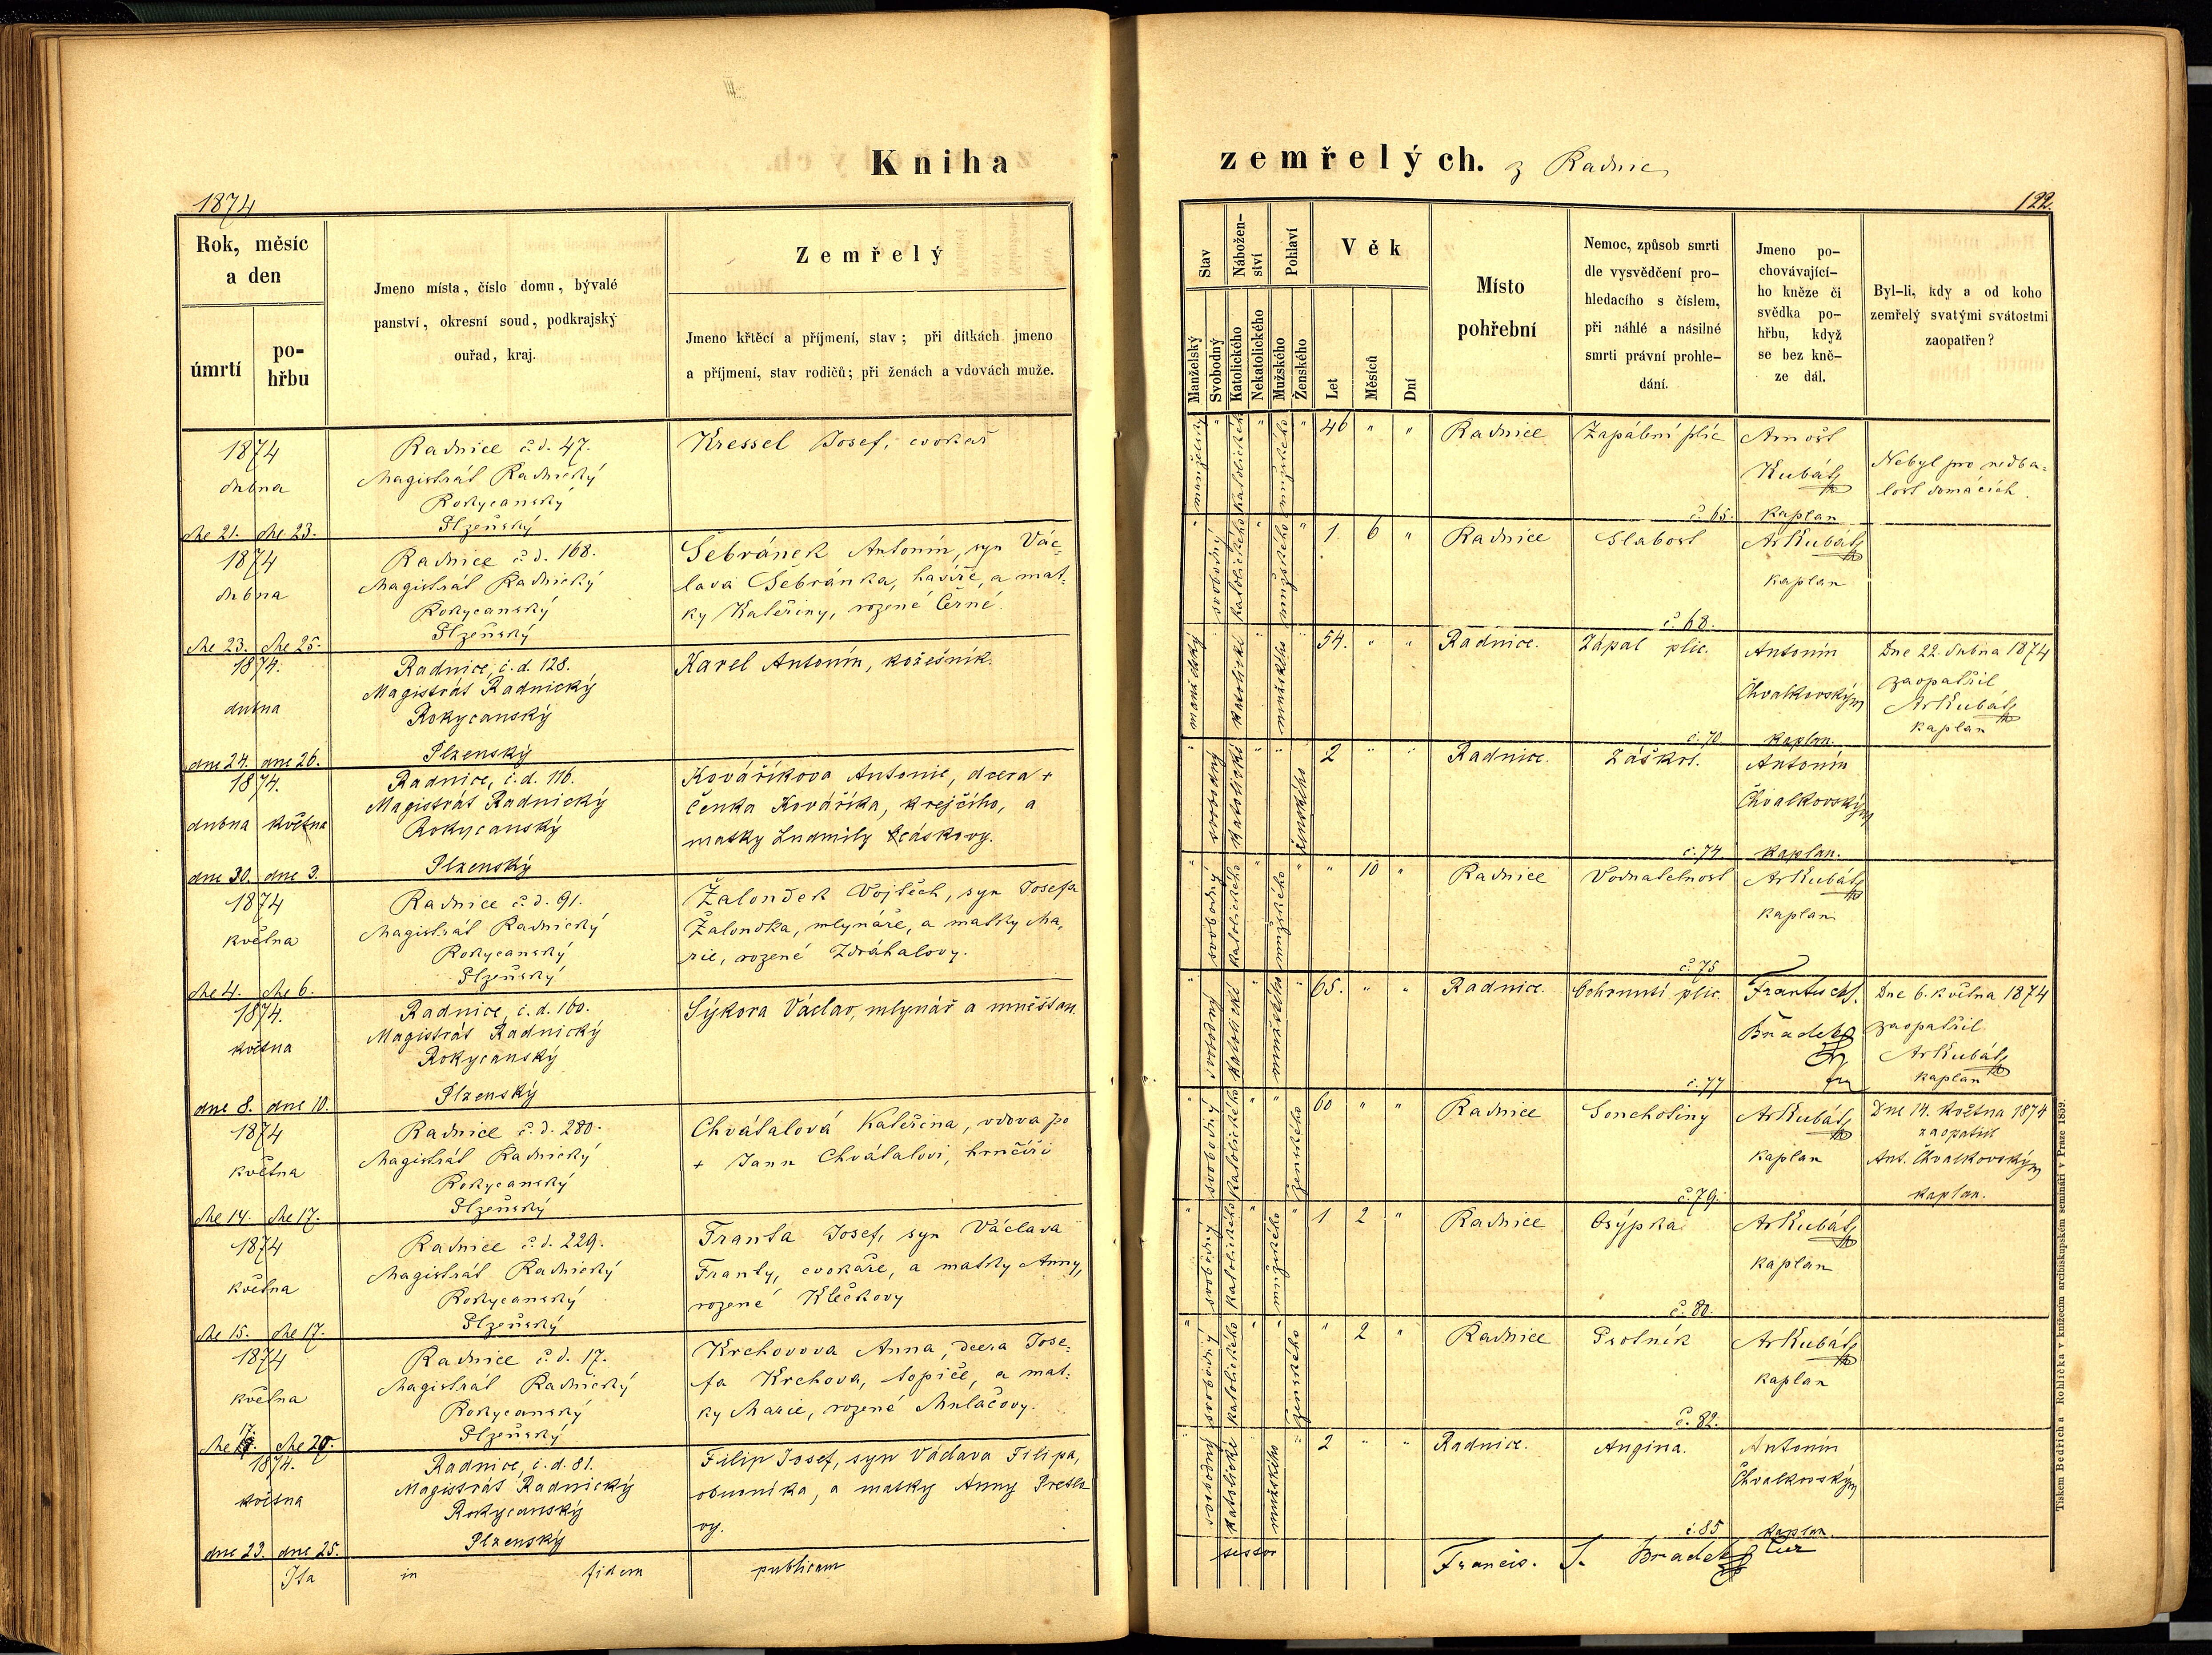 Kniha
zemřelých. z Radnic
1874
122.
Rok, měsíc
a den
úmrtí
po-
hřbu
Jmeno místa, číslo domu, bývalé
panství, okresní soud, podkrajský
ouřad, kraj.
Zemřelý
Jmeno křtěcí a příjmení, stav; při dítkách jmeno
a příjmení, stav rodičů; při ženách a vdovách muže.
Stav
Manželský
Svobodný
Nábožen-
ství
Katolického
Nekatolického
Pohlaví
Mužského
Ženského
Věk
Let
Měsíců
Dní
Místo
pohřební
Nemoc, způsob smrti
dle vysvědčení pro-
hledacího s číslem,
při náhlé a násilné
smrti právní prohle-
dání.
Jmeno po-
chovávající-
ho kněze či
svědka po-
hřbu, když
se bez kně-
ze dál.
Byl-li, kdy a od koho
zemřelý svatými svátostmi
zaopatřen?
1874
dubna
dne 21. dne 23.
Radnice č.d. 47.
Magistrát Radnický
Rokycanský
Plzeňský
Kressel Josef, cvokař
manželský " katolického " mužského "
46 " "
Radnice
Zapálení plic
č. 65.
Arnošt
Kubát
kaplan
Nebyl pro nedba-
lost domácích.
1874
dubna
dne 23. dne 25.
Radnice č.d. 168.
Magistrát Radnický
Rokycanský
Plzeňský
Šebránek Antonín, syn Vác-
lava Šebránka, havíře, a mat-
ky Kateřiny, rozené Černé.
" svobodný katolického " mužského "
1. 6 "
Radnice
Slabost
č. 68.
ArKubát
kaplan
1874.
dubna
dne 24. dne 26.
Radnice, č.d. 128.
Magistrát Radnický
Rokycanský
Plzenský
Karel Antonín, kožešník.
manželský " katolické " mužského "
54. " "
Radnice.
Zápal plic.
č. 70
Antonín
Chvalkovský
kaplan.
Dne 22. dubna 1874
zaopatřil
ArKubát
kaplan
1874.
dubna května
dne 30. dne 3.
Radnice, č.d. 116.
Magistrát Radnický
Rokycanský
Plzenský
Kováříkova Antonie, dcera +
Čenka Kováříka, krejčího, a
matky Ludmily
" svobodný katolické " " ženského
2 " "
Radnice.
Záškrt.
č. 74
Antonín
Chvalkovský
kaplan.
1874
května
dne 4. dne 6.
Radnice č.d. 91.
Magistrát Radnický
Rokycanský
Plzeňský
Žaloudek Vojtěch, syn Josefa
Žaloudka, mlynáře, a matky Ma-
rie, rozené Zdráhalovy.
" svobodný katolického " mužského "
" 10 "
Radnice
Vodnatelnost
č. 75
ArKubát
kaplan
1874.
května
dne 8. dne 10.
Radnice, č.d. 160.
Magistrát Radnický
Rokycanský
Plzenský
Sýkora Václav, mlynář a měšťan.
" svobodný katolické " mužského "
65. " "
Radnice.
Ochrnutí plic.
č. 77
František
Bradel
Dne 6. května 1874
zaopatřil
ArKubát
kaplan
1874
května
dne 14. dne 17.
Radnice č.d. 280.
Magistrát Radnický
Rokycanský
Plzeňský
Chválalová Kateřina, vdova po
+ Janu Chválalovi, hrnčíři
" svobodný katolického " " ženského
60 " "
Radnice
Souchotiny
č. 79.
ArKubát
kaplan
Dne 14. Května 1874
zaopatřil
Ant. Chvalkovský
kaplan.
1874
května
dne 15. dne 17.
Radnice č.d. 229.
Magistrát Radnický
Rokycanský
Plzeňský
Franta Josef, syn Václava
Franty, cvokáře, a matky Anny,
rozené Klečkovy
" svobodný katolického " mužského "
1 2 "
Radnice
Osýpka
č. 80.
ArKubát
kaplan
1874
května
dne 17. dne 20.
Radnice č.d. 17.
Magistrát Radnický
Rokycanský
Plzeňský
Krchovova Anna, dcera Jose-
fa Krchova, topiče, a mat-
ky Marie, rozené Mulačovy.
" svobodný katolického " " ženského
" 2 "
Radnice
Psotník
č. 82.
ArKubát
kaplan
1874.
května
dne 23. dne 25.
Radnice, č.d. 81.
Magistrát Radnický
Rokycanský
Plzenský
Filip Josef, syn Václava Filipa,
obuvníka, a matky Anny
vy.
" svobodný katolické " mužského "
2 " "
Radnice.
Angina.
č. 85
Antonín
Chvalkovský
kaplan.
Ita in fidem publicam
Francis. S. Bradel
Tiskem Bedřicha Rohlíčka v knížecím arcibiskupském semináři v Praze 1859.